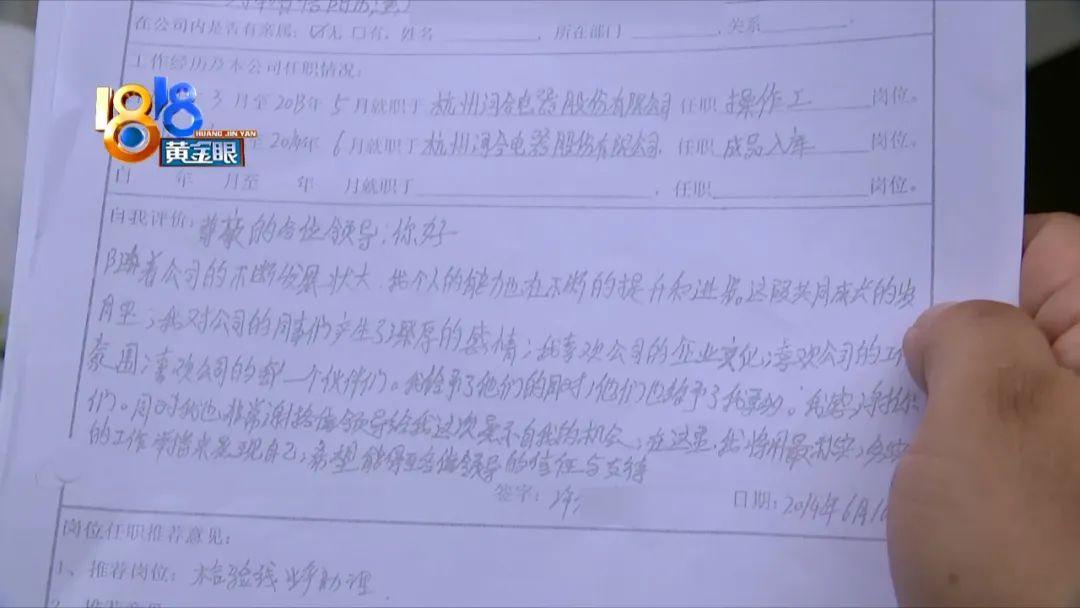 在公司内是否有亲属:☑无 □有,姓名________,所在部门________,关系________
工作经历及本公司任职情况:
3月至2013年5月就职于杭州河合电器股份有限公司 任职 操作工 岗位。
至2014年6月就职于杭州河合电器股份有限公司 任职 成品入库 岗位。
自 年 月至 年 月就职于________,任职________岗位。
1818
HUANG JIN YAN
黄金眼
自我评价:尊敬的各位领导:你好
随着公司的不断发展壮大,我个人的能力也在不断的提升和进步。这段共同成长的岁
月里;我对公司的同事们产生了深厚的感情;我喜欢公司的企业文化;喜欢公司的工作
氛围;喜欢公司的每一个伙伴们。我给予了他们的同时;他们也给予了我
们。同时我也非常谢谢各位领导给我这次展示自我的机会;在这里,我将用最
的工作 来展现自己;希望能得到各位领导的信任与支持
签字:许
日期:2014年6月1
岗位任职推荐意见:
1、推荐岗位:检验线 助理
2、推荐意见